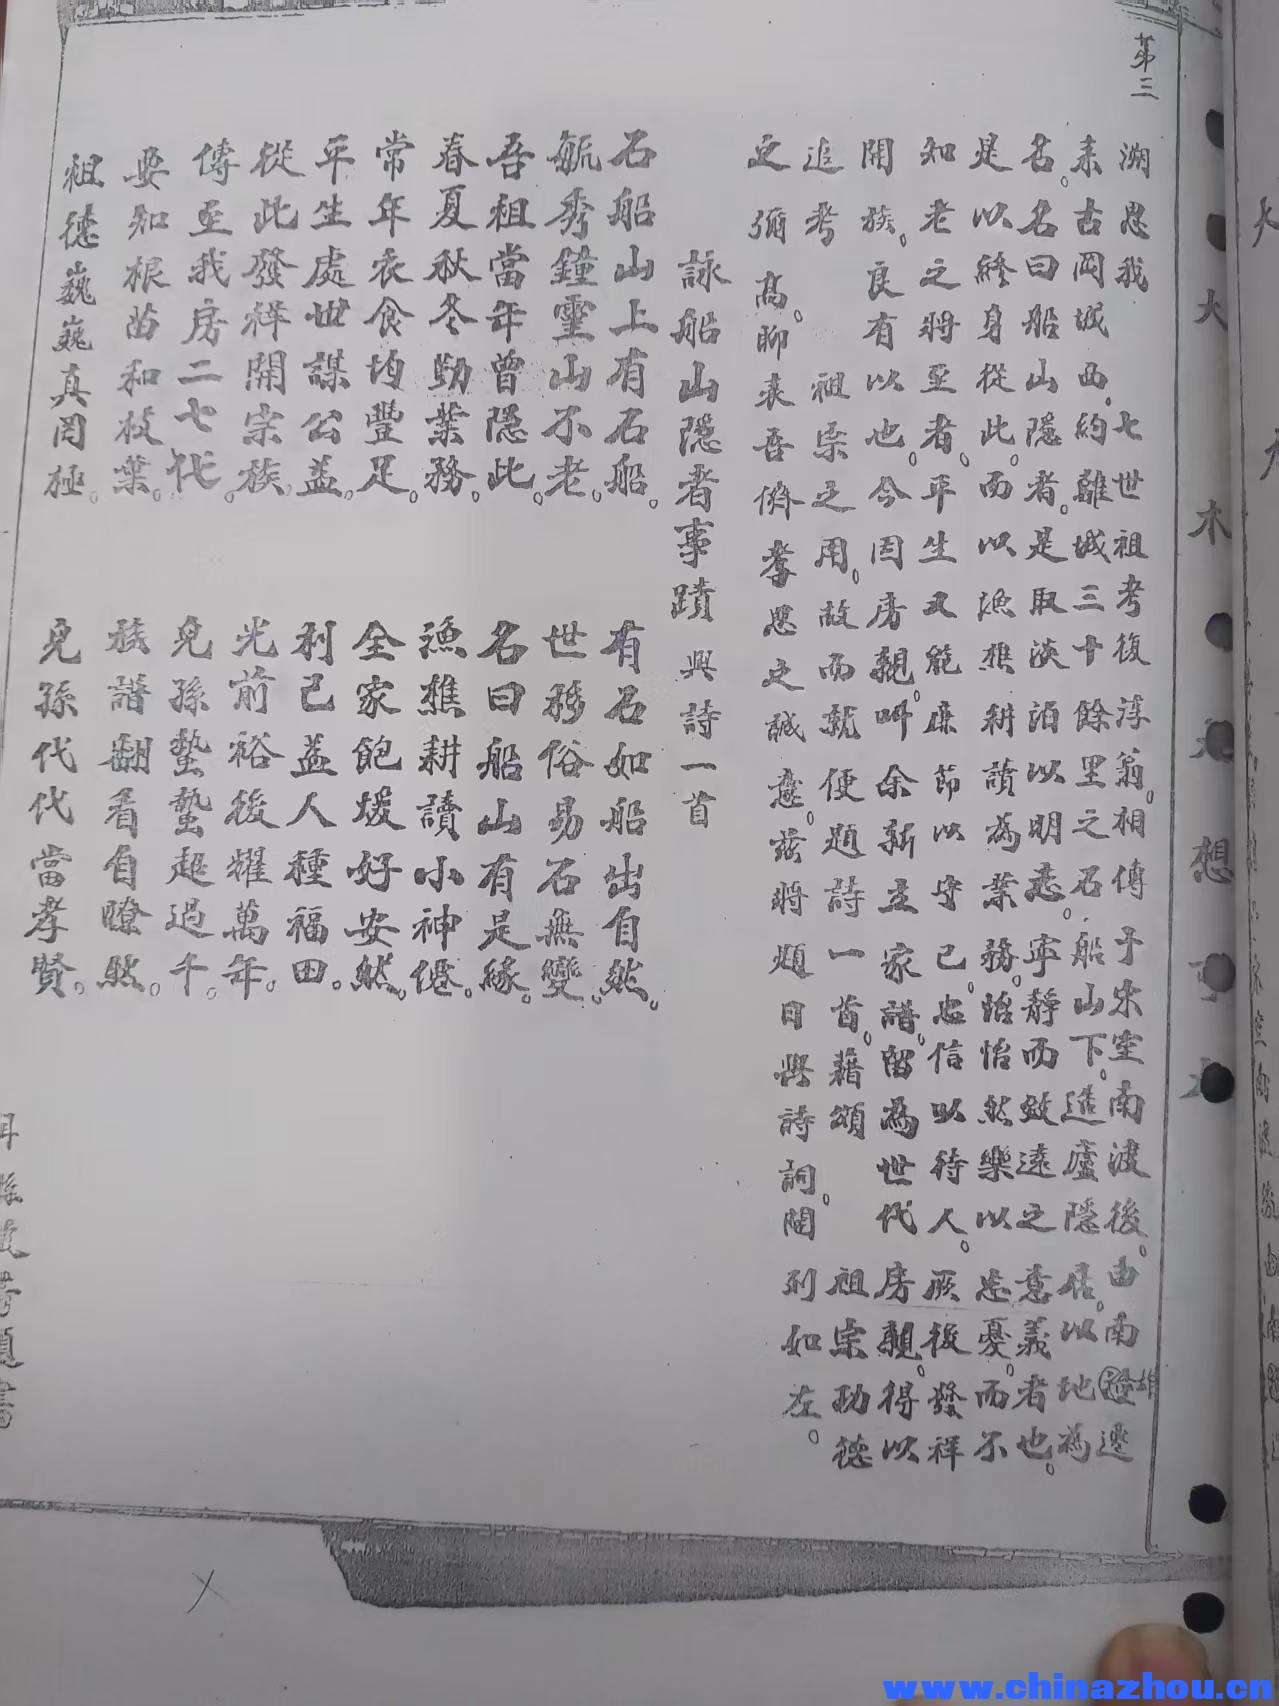 第三
溯思我 七世祖考復淳翁。相傳于宋室南渡後。由南雄遷
來古岡城西。約離城三十餘里之石船山下。造廬隱居。以地為
名。名曰船山隱者。是取淡泊以明志。寧靜而致遠之意義者也。
是以終身從此。而以漁樵耕讀為業務。怡怡然樂以忘憂。而不
知老之將至者。平生又能廉節以守己。忠信以待人。厥後發祥
開族。良有以也。今因房親。叫余新立 家譜。留為世代 房親。得以
追考 祖宗之用。故而就便題詩一首。藉頌 祖宗功德
之彌高。聊表吾儕孝思之誠意。茲將題目與詩詞。開列如左。
詠船山隱者事蹟 與詩一首
石船山上有石船。 有石如船出自然。
毓秀鐘靈山不老。 世移俗易石無變。
吾祖當年曾隱此。 名曰船山有是緣。
春夏秋冬勤業務。 漁樵耕讀小神僊。
常年衣食均豐足。 全家飽煖好安然。
平生處世謀公益。 利己益人種福田。
從此發祥開宗族。 光前裕後耀萬年。
傳至我房二七代。 兒孫蟄蟄超過千。
要知根苗和枝葉。 族譜翻看自瞭然。
祖德巍巍真罔極。 兒孫代代當孝賢。
www.chinazhou.cn